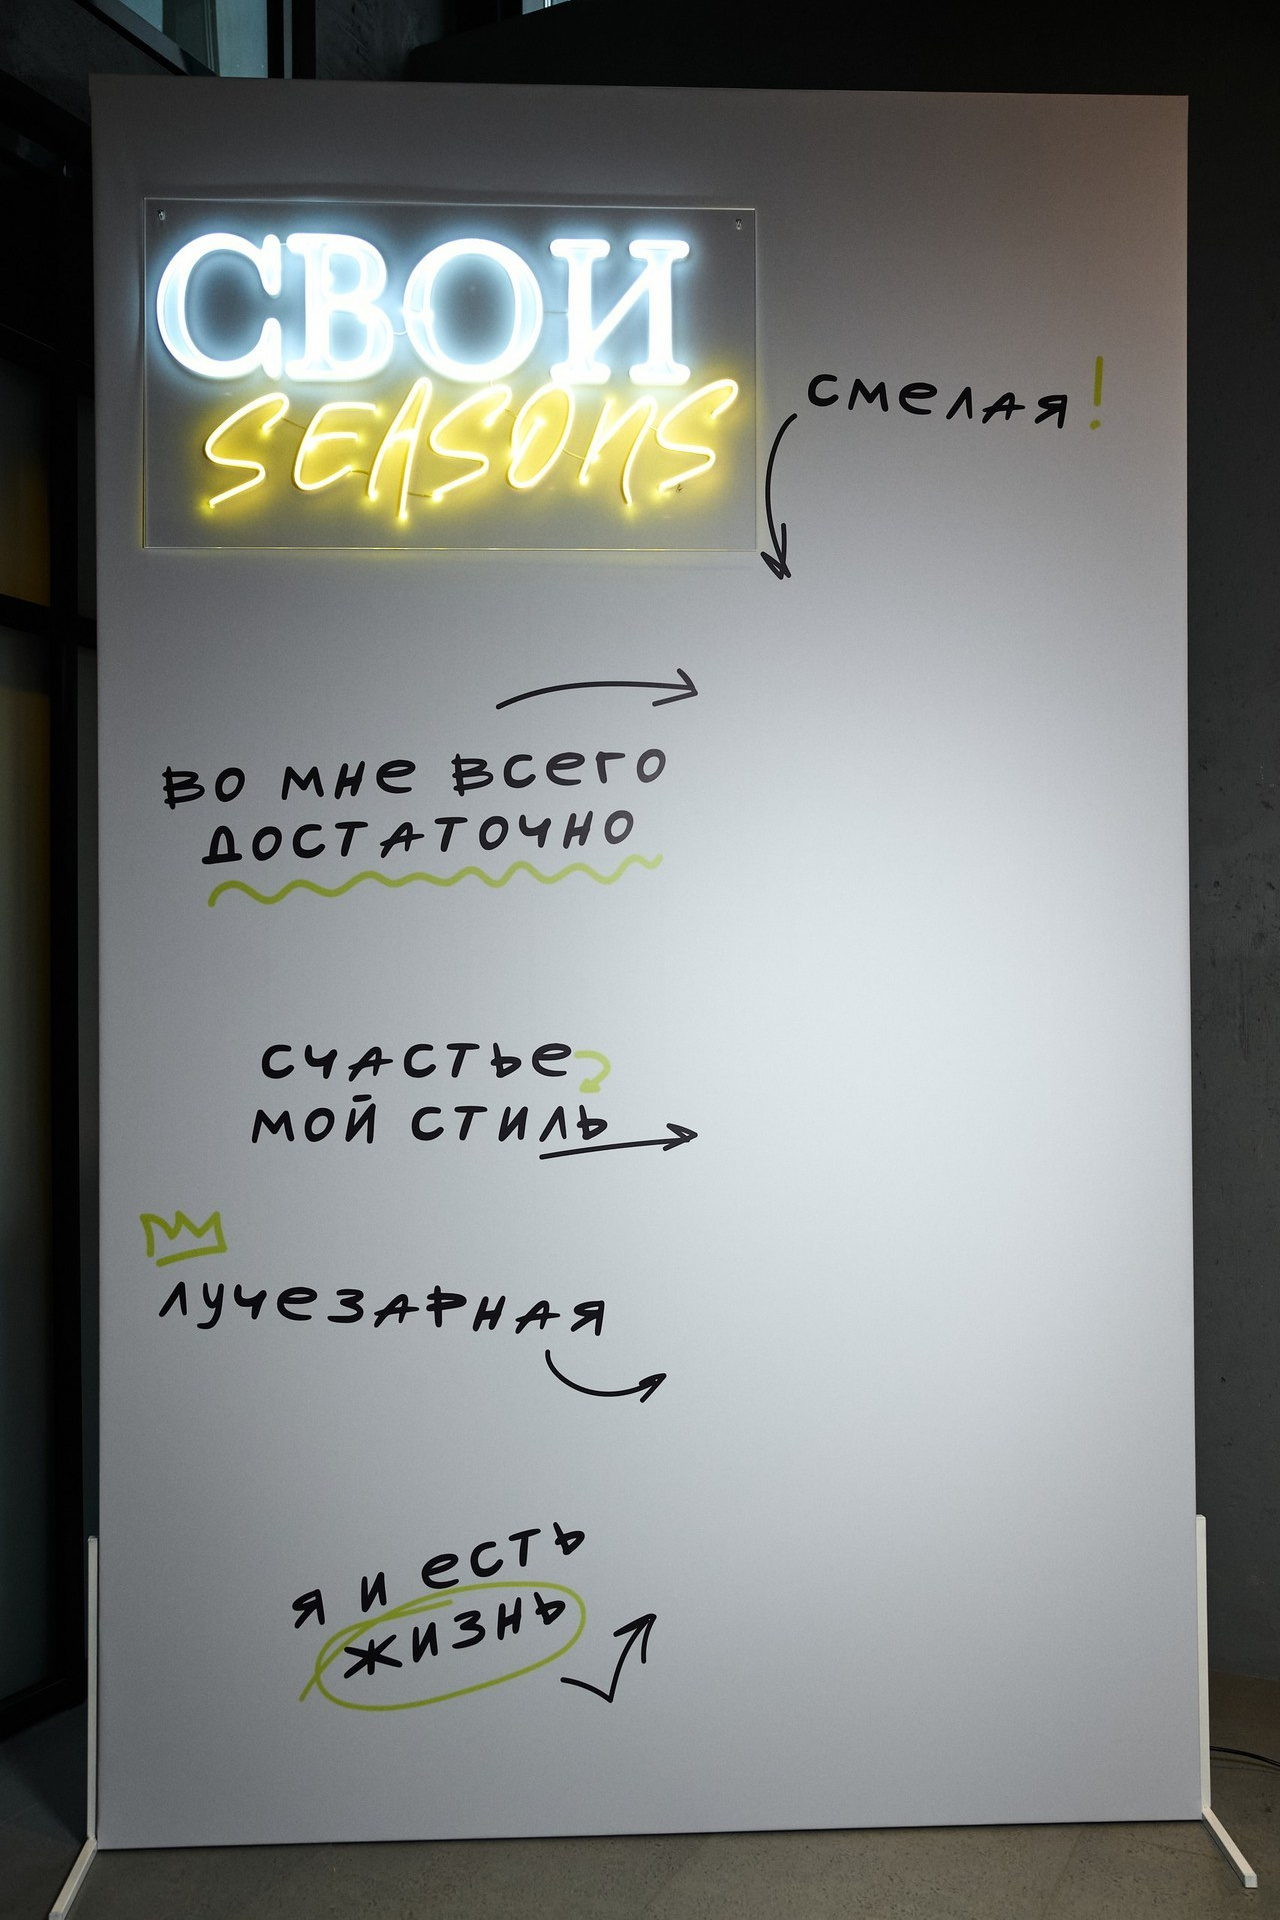 СВОИ
SEASONS
смелая!
во мне всего
достаточно
счастье
мой стиль
лучезарная
я и есть
жизнь